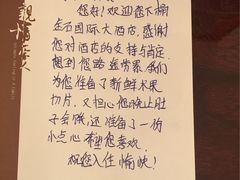 親情家人
您好!欢迎您下榻
金石国际大酒店,感谢
您对酒店的支持与肯定
想到您路途劳累,我们
为您准备了新鲜水果
切片,又担心您晚上肚
子会饿,还准备了一份
小点心希望您喜欢.
祝您入住愉快!